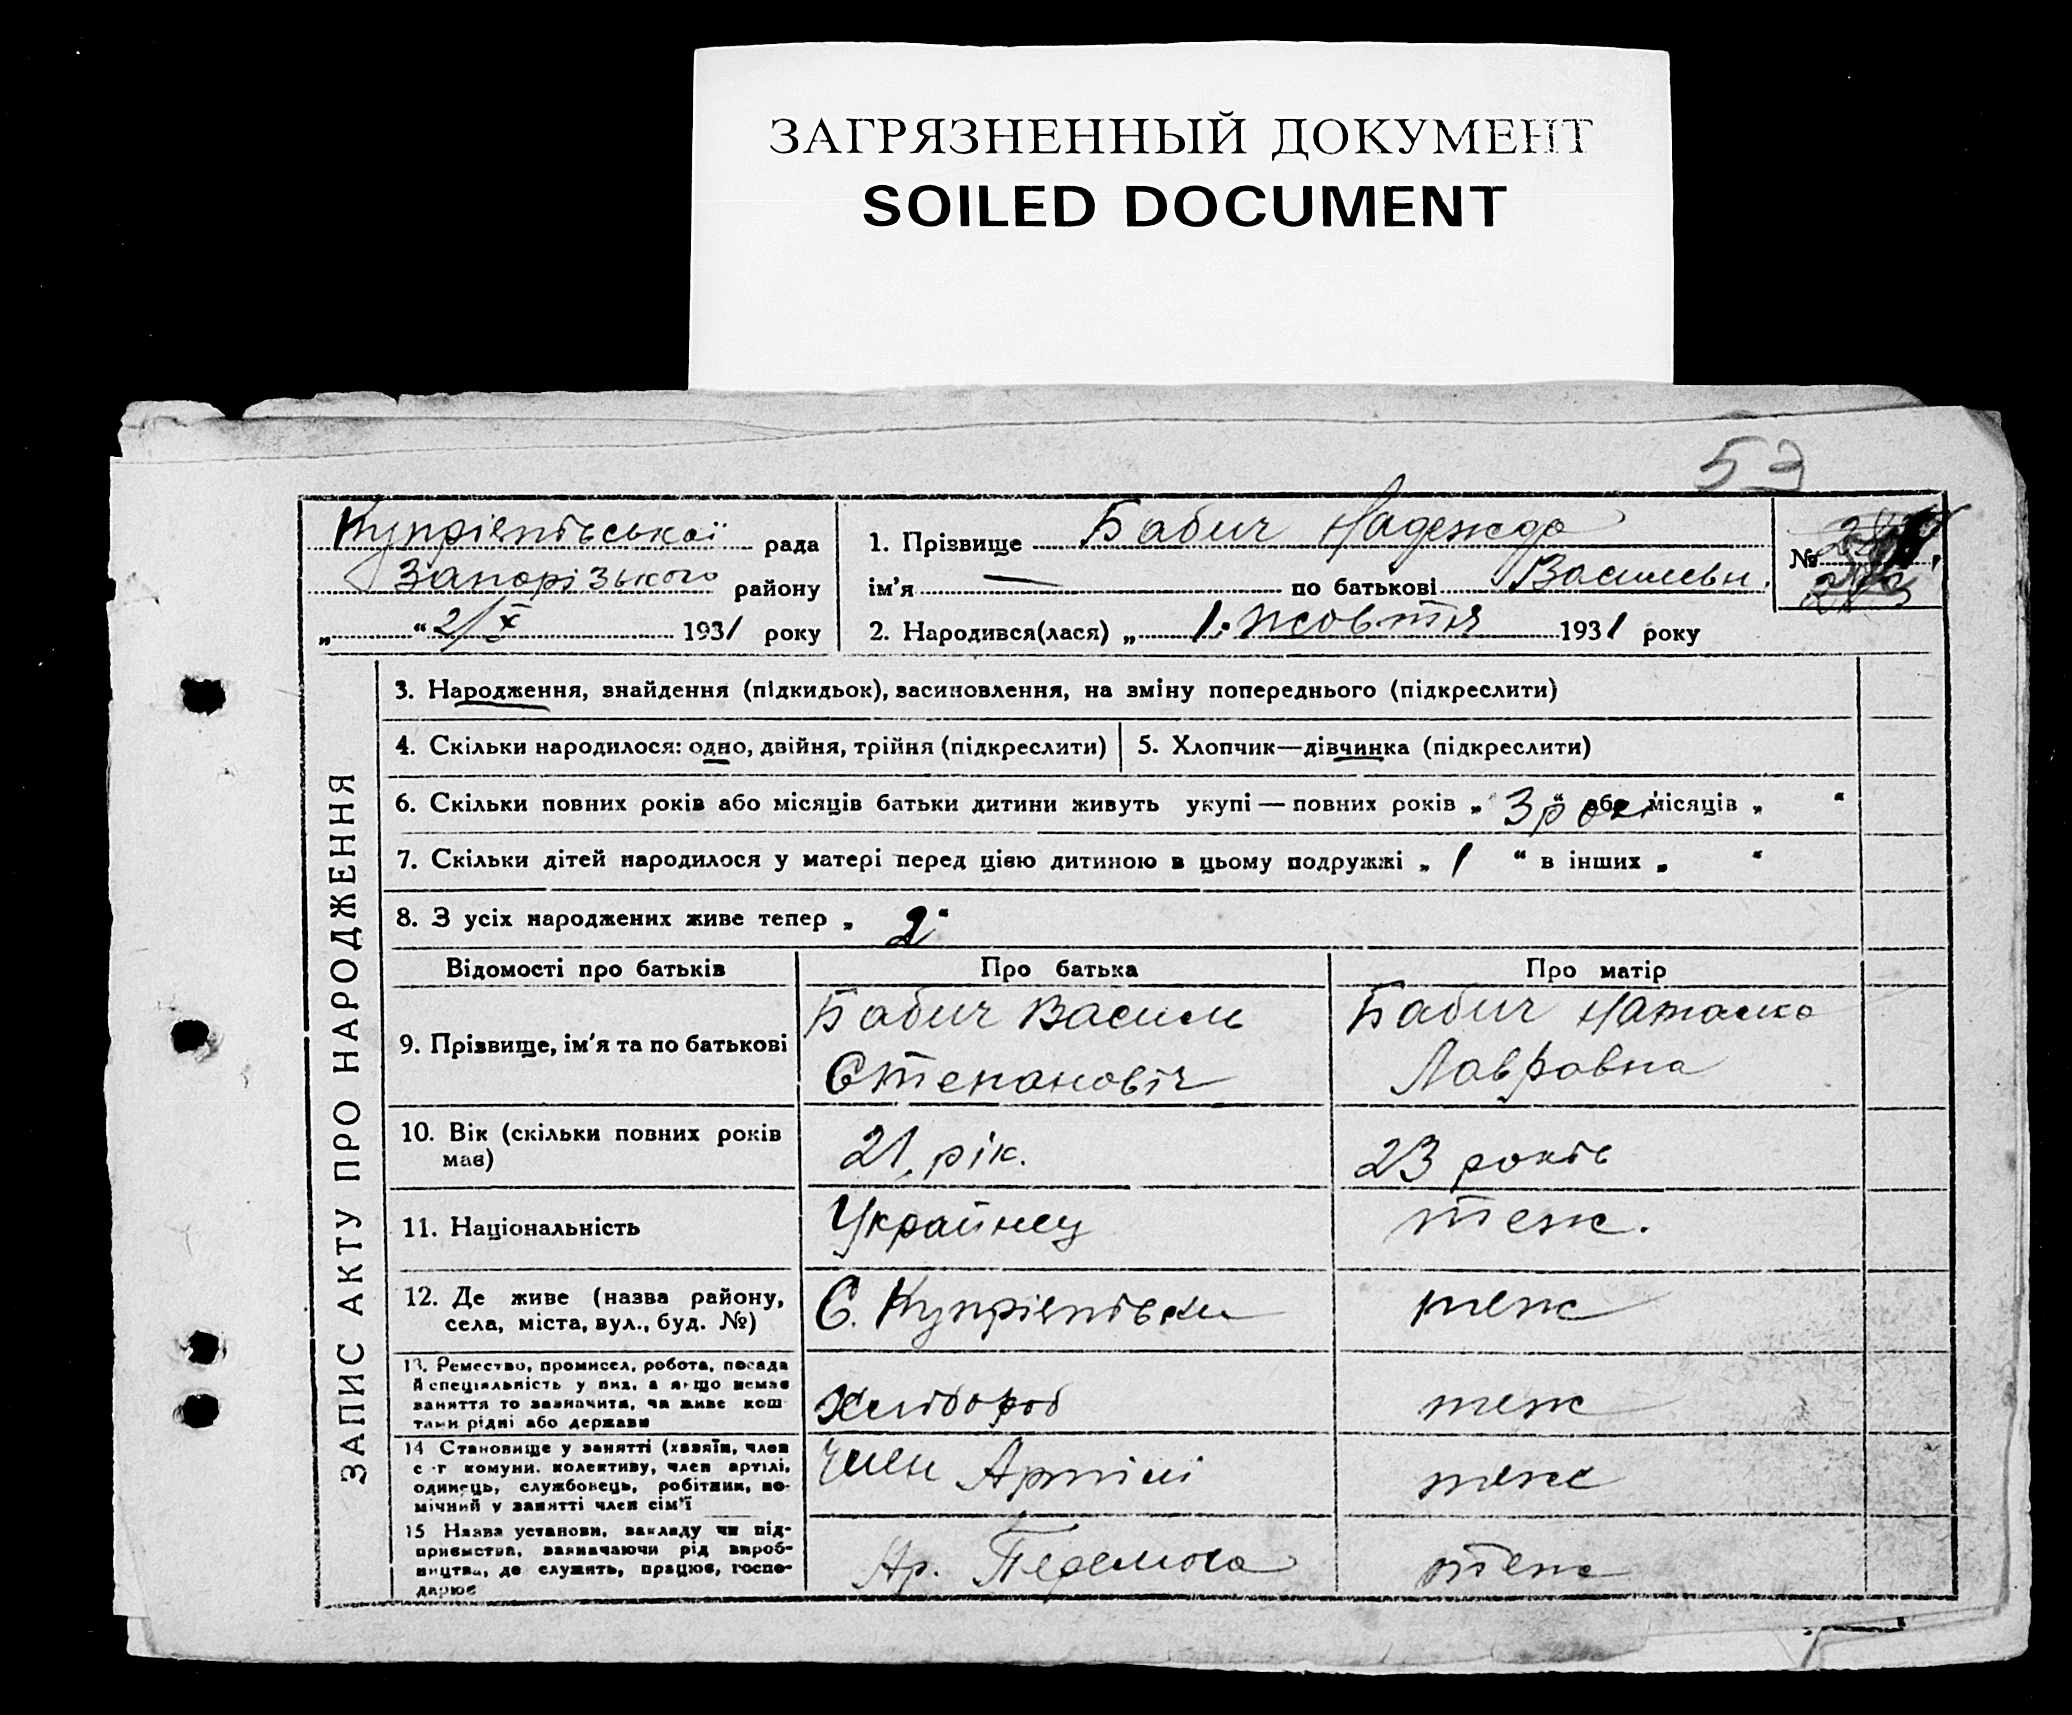 ЗАГРЯЗНЕННЫЙ ДОКУМЕНТ
SOILED DOCUMENT
53
Купріянівської рада
Запорізького району
„ “ 2/X 1931 року
1. Прізвище Бабич Надежда
ім'я — по батькові Васильевн.
2. Народився(лася) „ 1. жовтня 1931 року
№
ЗАПИС АКТУ ПРО НАРОДЖЕННЯ
3. Народження, знайдення (підкидьок), васиновлення, на зміну попереднього (підкреслити)
4. Скільки народилося: одно, двійня, трійня (підкреслити)
5. Хлопчик—дівчинка (підкреслити)
6. Скільки повних років або місяців батьки дитини живуть укупі — повних років „ 3 роки “ або місяців „ “
7. Скільки дітей народилося у матері перед цією дитиною в цьому подружжі „ 1 “ в інших „ “
8. З усіх народжених живе тепер „ 2 “
Відомості про батьків Про батька Про матір
9. Прізвище, ім'я та по батькові
Бабич Василь
Степановіч
Бабич Наталка
Лавровна
10. Вік (скільки повних років
має)
21. рік.
23 років
11. Національність Украйнец теж.
12. Де живе (назва району,
села, міста, вул., буд. №)
С. Купріянівки
теж
13. Ремество, промисел, робота, посада
й спеціяльність у них, а якщо немає
заняття то зазначити, чи живе кош
тами рідні або держави
Хлібороб
теж
14 Становище у занятті (хазяїн, член
с-г комуни. колективу, член артілі,
одинець, службовець, робітник, по-
мічний у занятті член сім'ї
член Артілі
теж
15 Назва установи, закладу чи під-
приємства, зазначаючи рід вироб-
ництва, де служить, працює, госпо-
дарює
Ар. Перемога
теж